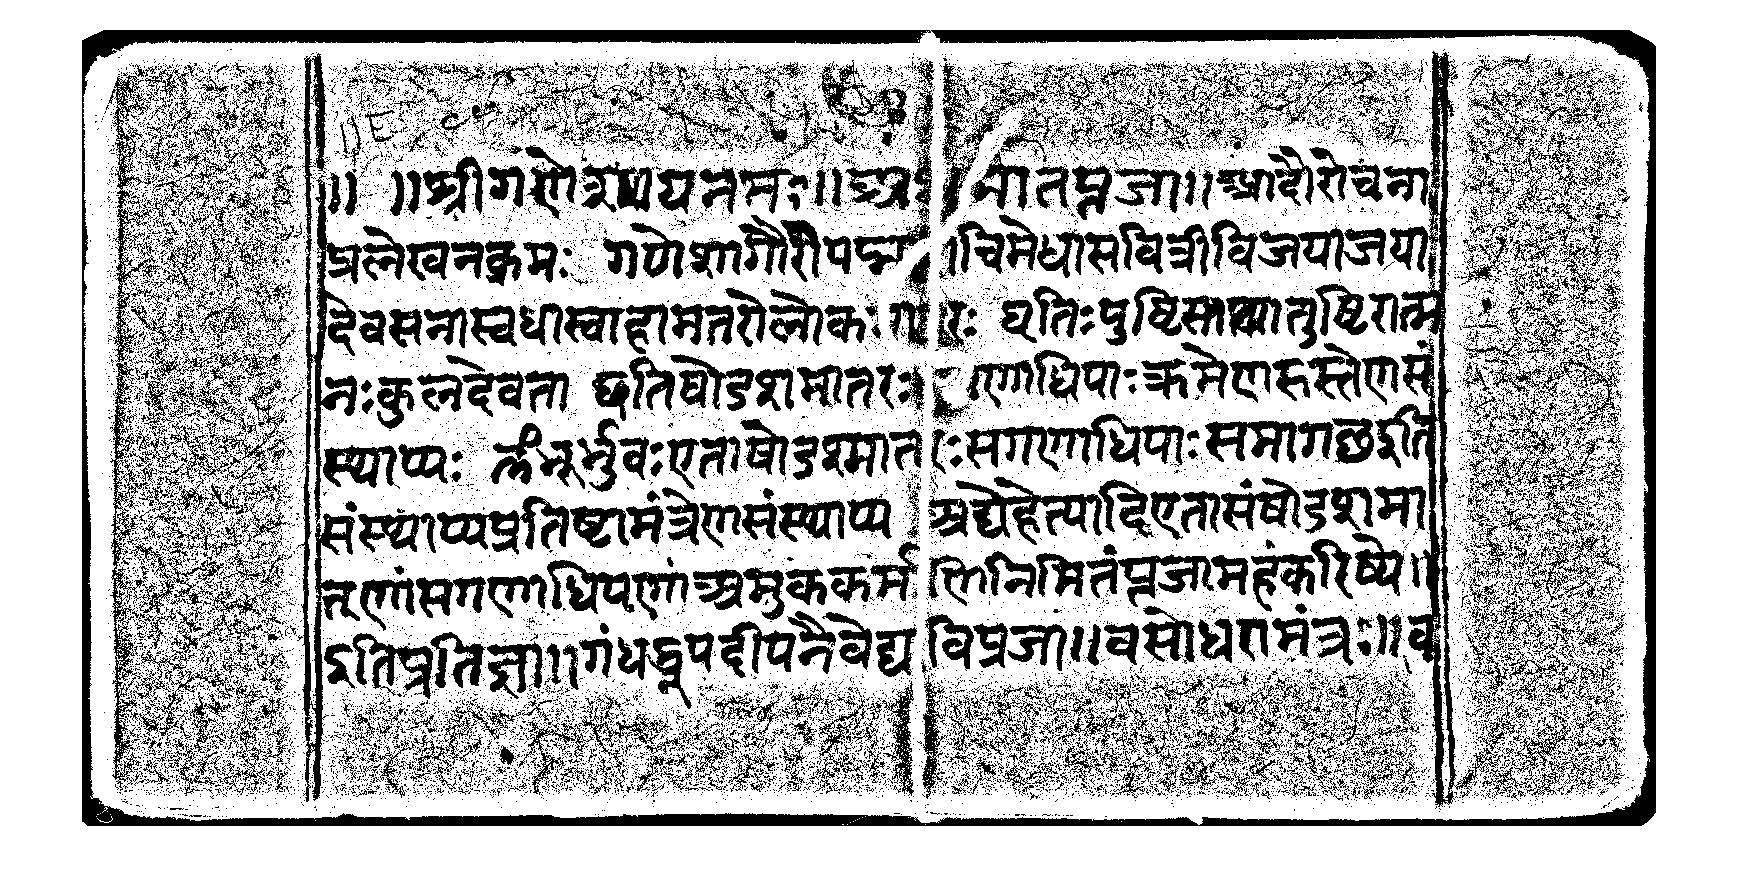 ॥ ॥श्रीगणेशाय नमः॥॥अथ मातृपूजा॥॥आदौरोचना
प्रलेखनक्रमः गणेशागौरीपद्मा चिमेधासवित्रीविजयाजया
देवसेनास्वधास्वाहामातरोलोकमातरः धृतिःपुष्टिस्तथातुष्टिरात्म
नःकुलदेवता इतिषोडशमातरः गणाधिपाःक्रमेणहस्तेणसं
स्थाप्यः ॐभूर्भुवःएताषोडश्मातरःसगणाधिपाःसमागछइति
संस्थाप्यप्रतिष्टामंत्रेणसंस्थाप्य अद्येहेत्यादिएतासंषोडशमा
तॄणांसगणाधिपाणांअमुककर्म णिनिमितंपूजामहंकरिष्ये॥
इतिप्रतिज्ञा॥॥गंधधूपदीपनैवेद्य विप्रजा॥वसोधरामंत्रः॥व